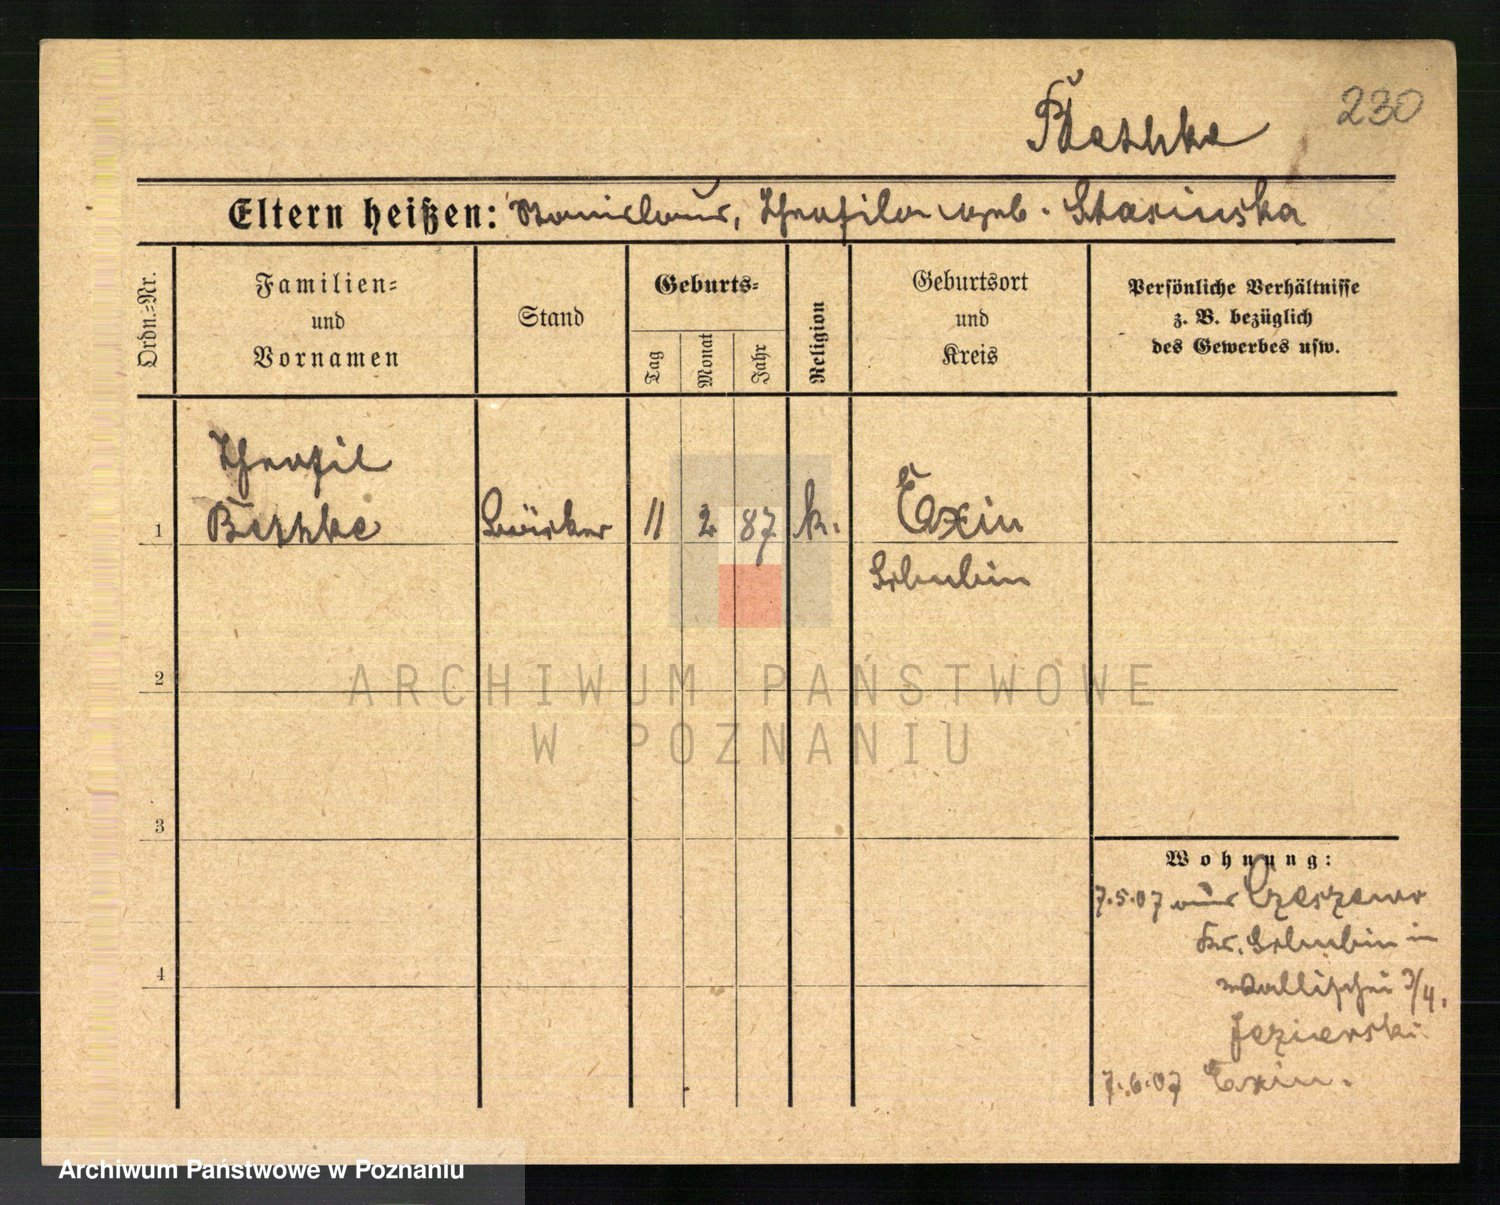 230
Bethke
Eltern heißen: Stanislaus, Theofila geb. Starinska
Ordn.=Nr.
Familien=
und
Vornamen
Stand
Geburts=
Tag
Monat
Jahr
Religion
Geburtsort
und
Kreis
Persönliche Verhältnisse
z. B. bezüglich
des Gewerbes usw.
Theofil
1 Bethke 11 2 87 k. Exin
Schubin
2
3
4
Wohnung:
7.5.07 aus Czeszewo
Kr. Schubin in
Wallischei 3/4.
Jezierski.
7.6.07 Exin.
ARCHIWUM PAŃSTWOWE
W POZNANIU
Archiwum Państwowe w Poznaniu